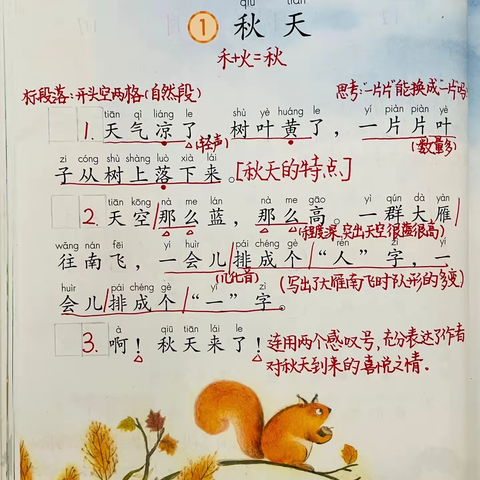 qiū tiān
① 秋天
禾+火=秋
标段落:开头空两格(自然段)
思考:“一片片”能换成“一片”吗
tiān qì liáng le shù yè huáng le yí piàn piàn yè
1. 天气凉了 树叶黄了，一片片叶
(轻声) (数量多)
zi cóng shù shàng luò xià lái
子从树上落下来。[秋天的特点]
tiān kōng nà me lán nà me gāo yì qún dà yàn
2. 天空/那么蓝，那么高。一群大雁/
(程度深,突出天空很蓝很高)
wǎng nán fēi yí huìr pái chéng gè rén zì yí
往南飞，一会儿/排成个/“人”字，一
(儿化音) (写出了大雁南飞时队形的多变)
huìr pái chéng gè yī zì
会儿/排成个/“一”字。
à qiū tiān lái le
3. 啊！秋天来了！连用两个感叹号,充分表达了作者
对秋天到来的喜悦之情。